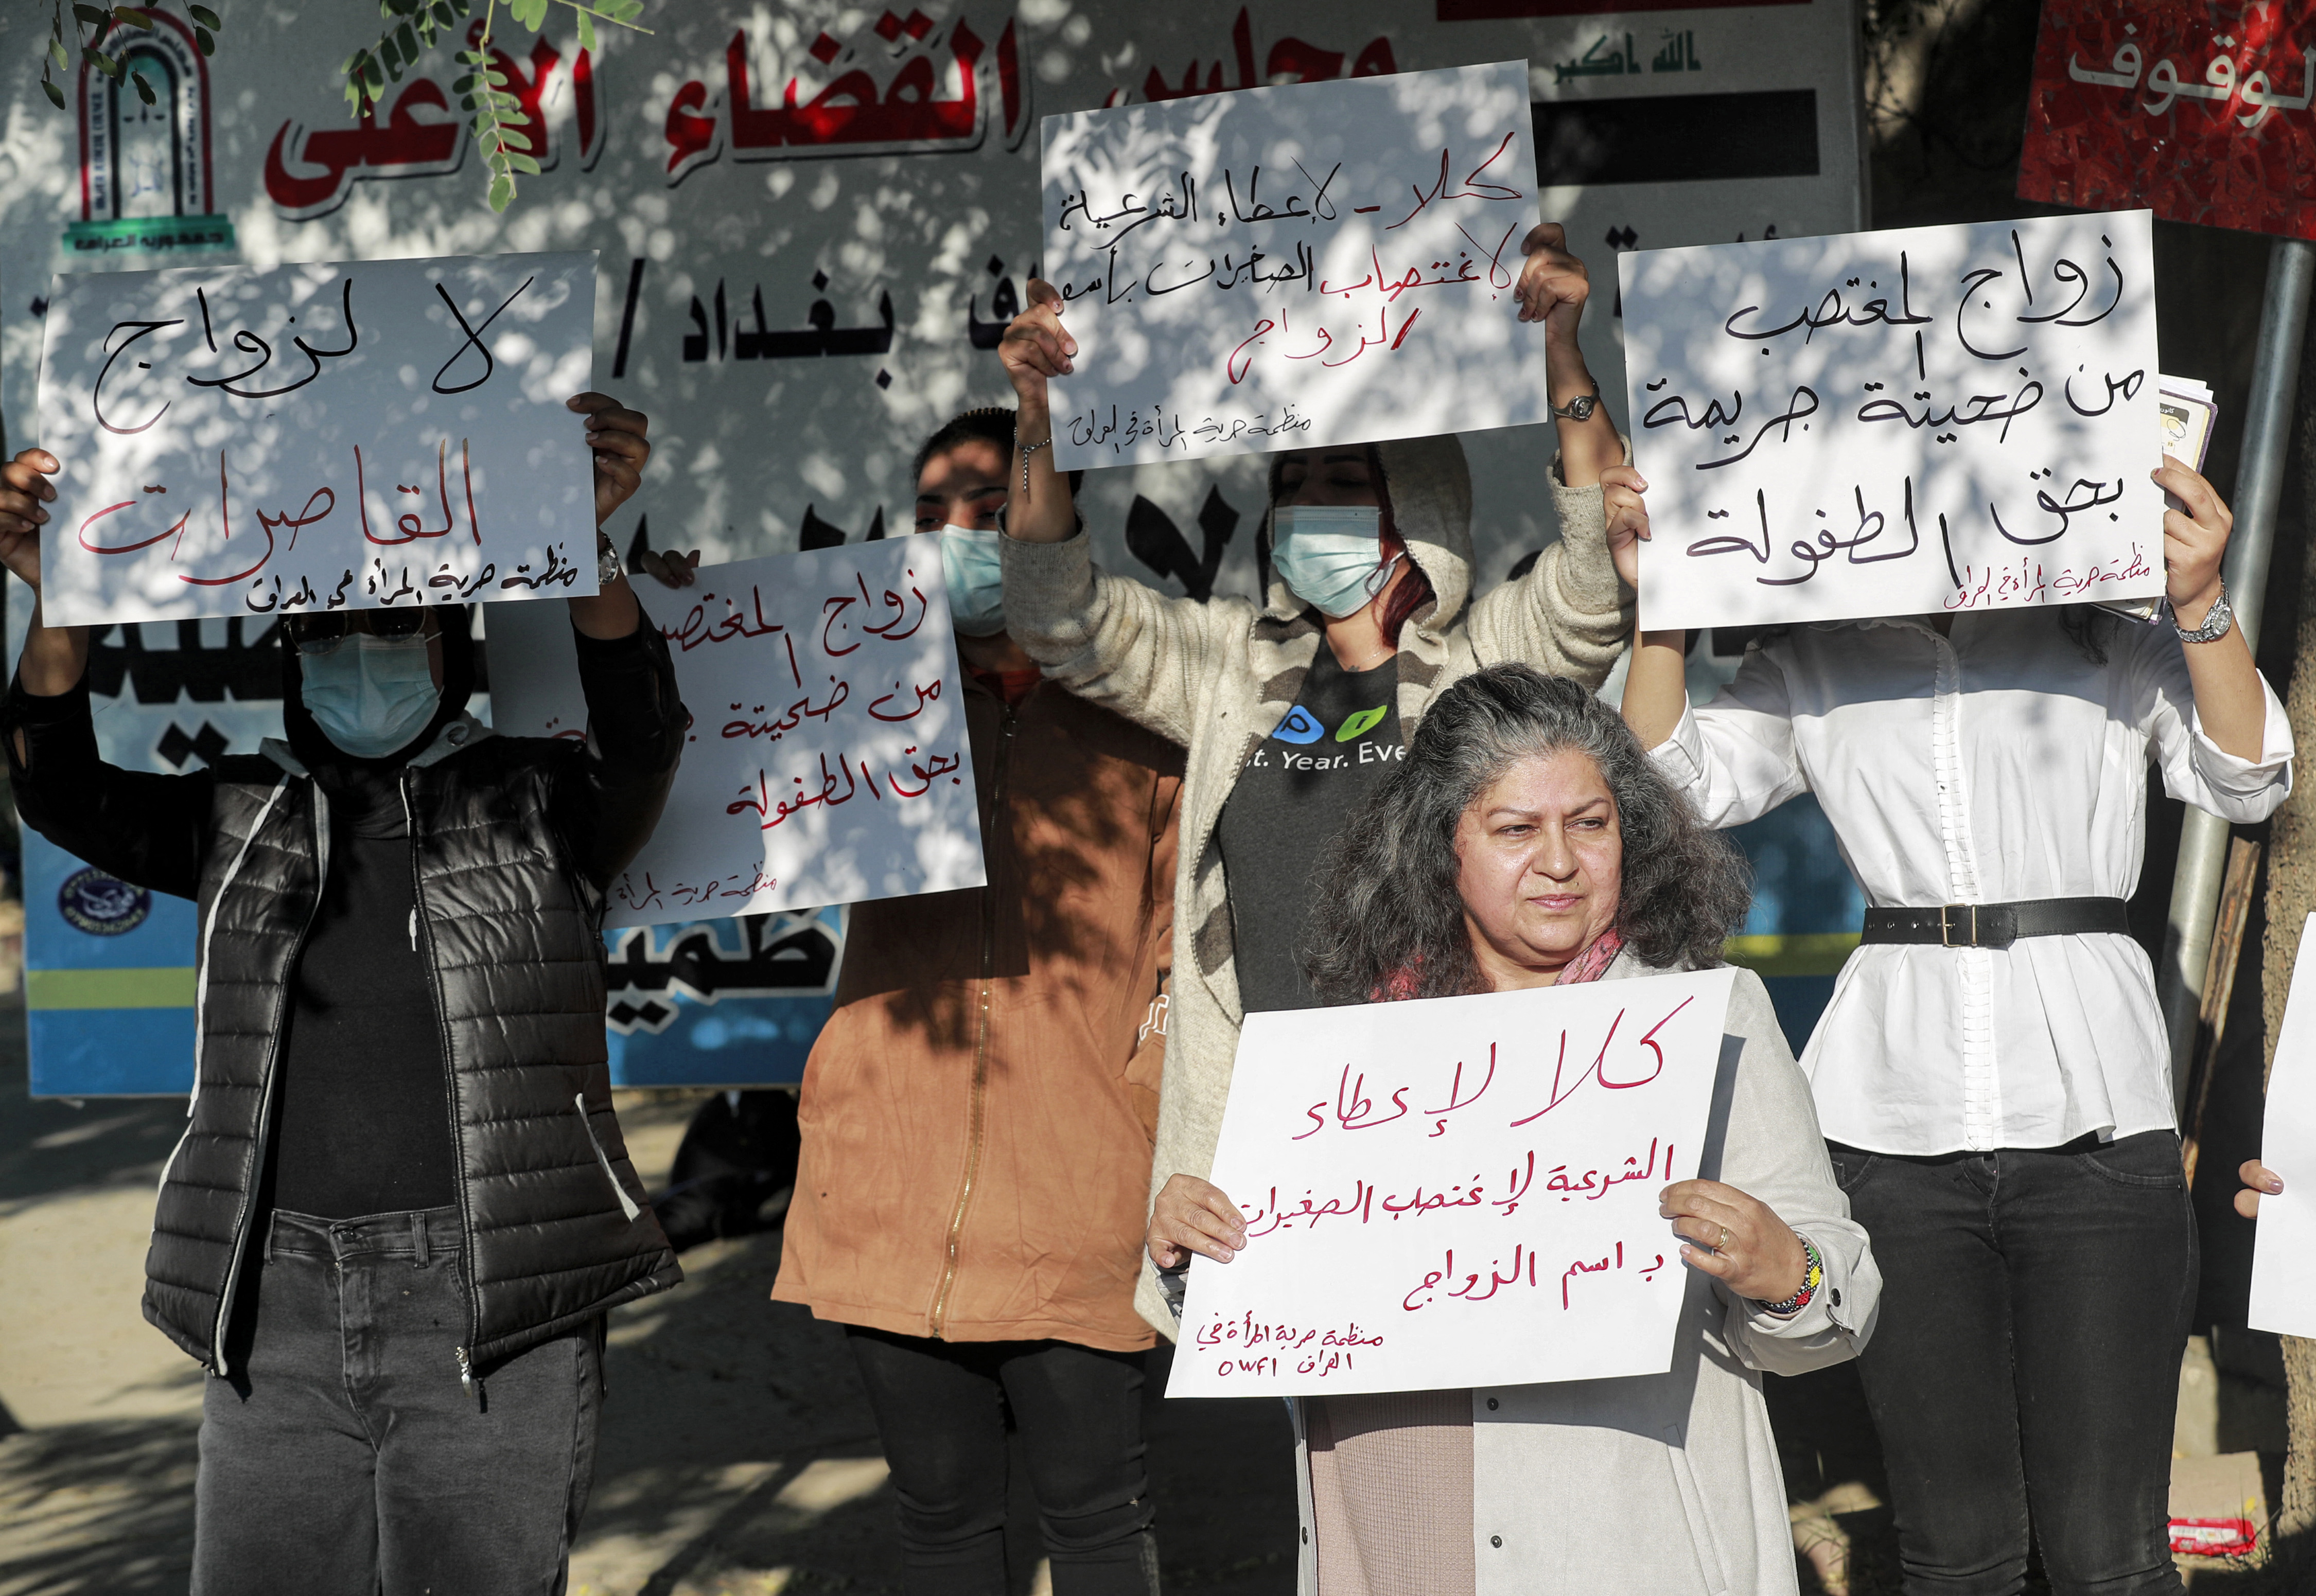 مجلس القضاء الأعلى
الله اكبر
الوقوف
جمهورية العراق
بغداد /
كلا - لإعطاء الشرعية
لإغتصاب الصغيرات بأسم
الزواج
منظمة حرية المرأة في العراق
لا لزواج
القاصرات
منظمة حرية المرأة في العراق
زواج المغتصب
من ضحيتة جريمة
بحق الطفولة
منظمة حرية المرأة في العراق
زواج المغتصب
من ضحيتة
بحق الطفولة
منظمة حرية المرأة
t. Year. Eve
كلا لإعطاء
الشرعية لإغتصاب الصغيرات
باسم الزواج
منظمة حرية المرأة في
العراق OWFI